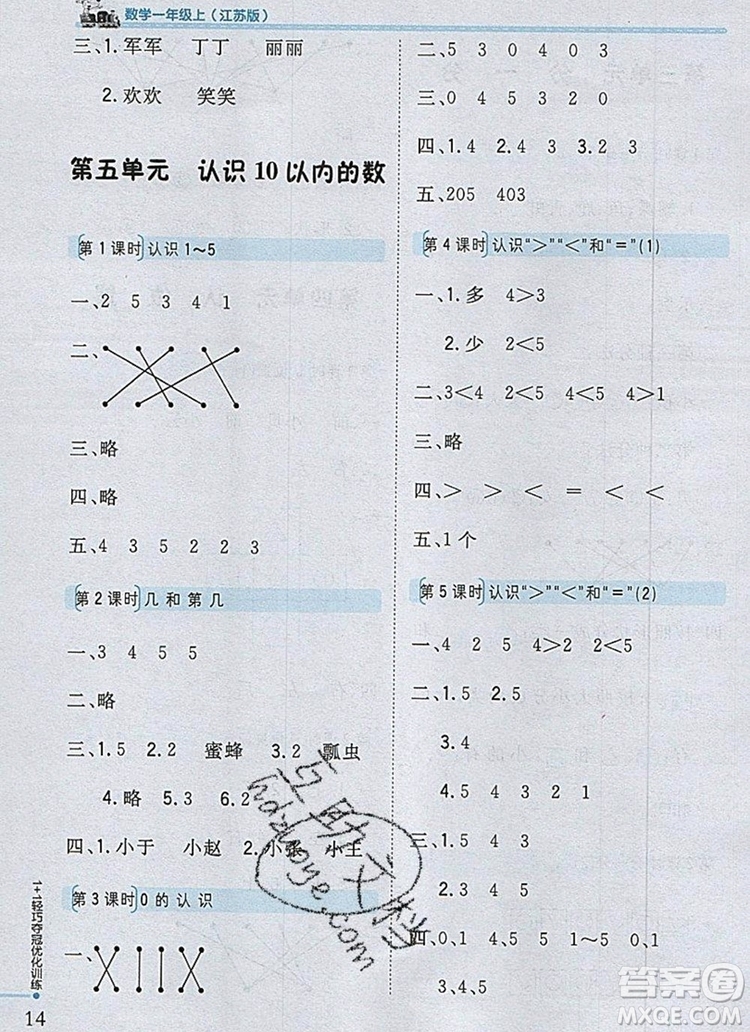 数学一年级上(江苏版)
三、1.军军 丁丁 丽丽
2.欢欢 笑笑
第五单元 认识10以内的数
第1课时 认识1~5
一、2 5 3 4 1
二、
三、略
四、略
五、4 3 5 2 2 3
第2课时 几和第几
一、3 4 5 5
二、略
三、1.5 2.2 蜜蜂 3.2 瓢虫
4.略 5.3 6.2
四、1.小于 小赵 2.小张 小王
第3课时 0的认识
一、
二、5 3 0 4 0 3
三、0 4 5 3 2 0
四、1.4 2.4 3 3.2 3
五、205 403
第4课时 认识“>”“<”和“=”(1)
一、1.多 4>3
2.少 2<5
二、3<4 2<5 4<5 4>1
三、略
四、> > < = < <
五、1个
第5课时 认识“>”“<”和“=”(2)
一、4 2 5 4>2 2<5
二、1.5 2.5
3.4
4.5 5.1
三、1.5 4 4<5
2.3 4 5
四、0,1 4,5 4,5 0,1
3,4,5
1+1轻巧夺冠优化训练
14
互助文档
hdzuoye.com
答案圈
MXQE.COM